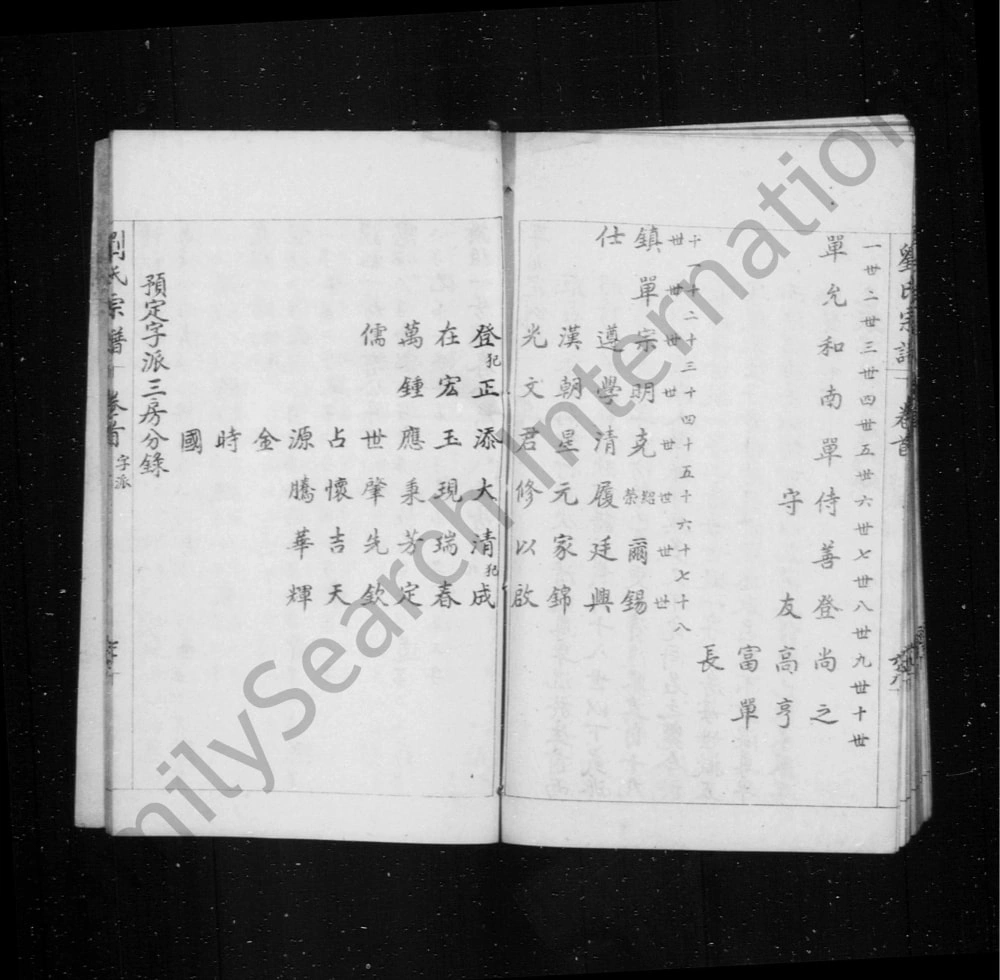 劉氏宗譜 卷首
一世二世三世四世五世六世七世八世九世十世
單允和南單侍善登尚之
守 友高亨
富單
長
十一世十二世十三世十四世十五世十六世十七世十八世
鎮單宗明克紹榮爾錫
仕 遵學清履廷興
漢朝星元家錦
光文君修以啟
登犯正添大清犯成
在宏玉現瑞春
萬鍾應秉芳定
儒 世肇先欽
占懷吉天
源騰華輝
金
時
國
預定字派三房分錄
劉氏宗譜 卷首 字派
FamilySearch International